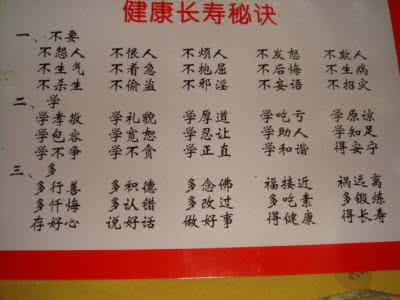 健康长寿秘诀
一、不要
不怨人 不恨人 不烦人 不发怒 不欺人
不生气 不着急 不抱屈 不后悔 不生病
不杀生 不偷盗 不邪淫 不妄语 不招灾
二、学
学孝敬 学礼貌 学厚道 学吃亏 学原谅
学包容 学宽恕 学忍让 学助人 学知足
学不争 学不贪 学正直 学和谐 得安宁
三、多
多行善 多积德 多念佛 福接近 祸远离
多忏悔 多认错 多改过 多吃素 多锻炼
存好心 说好话 做好事 得健康 得长寿